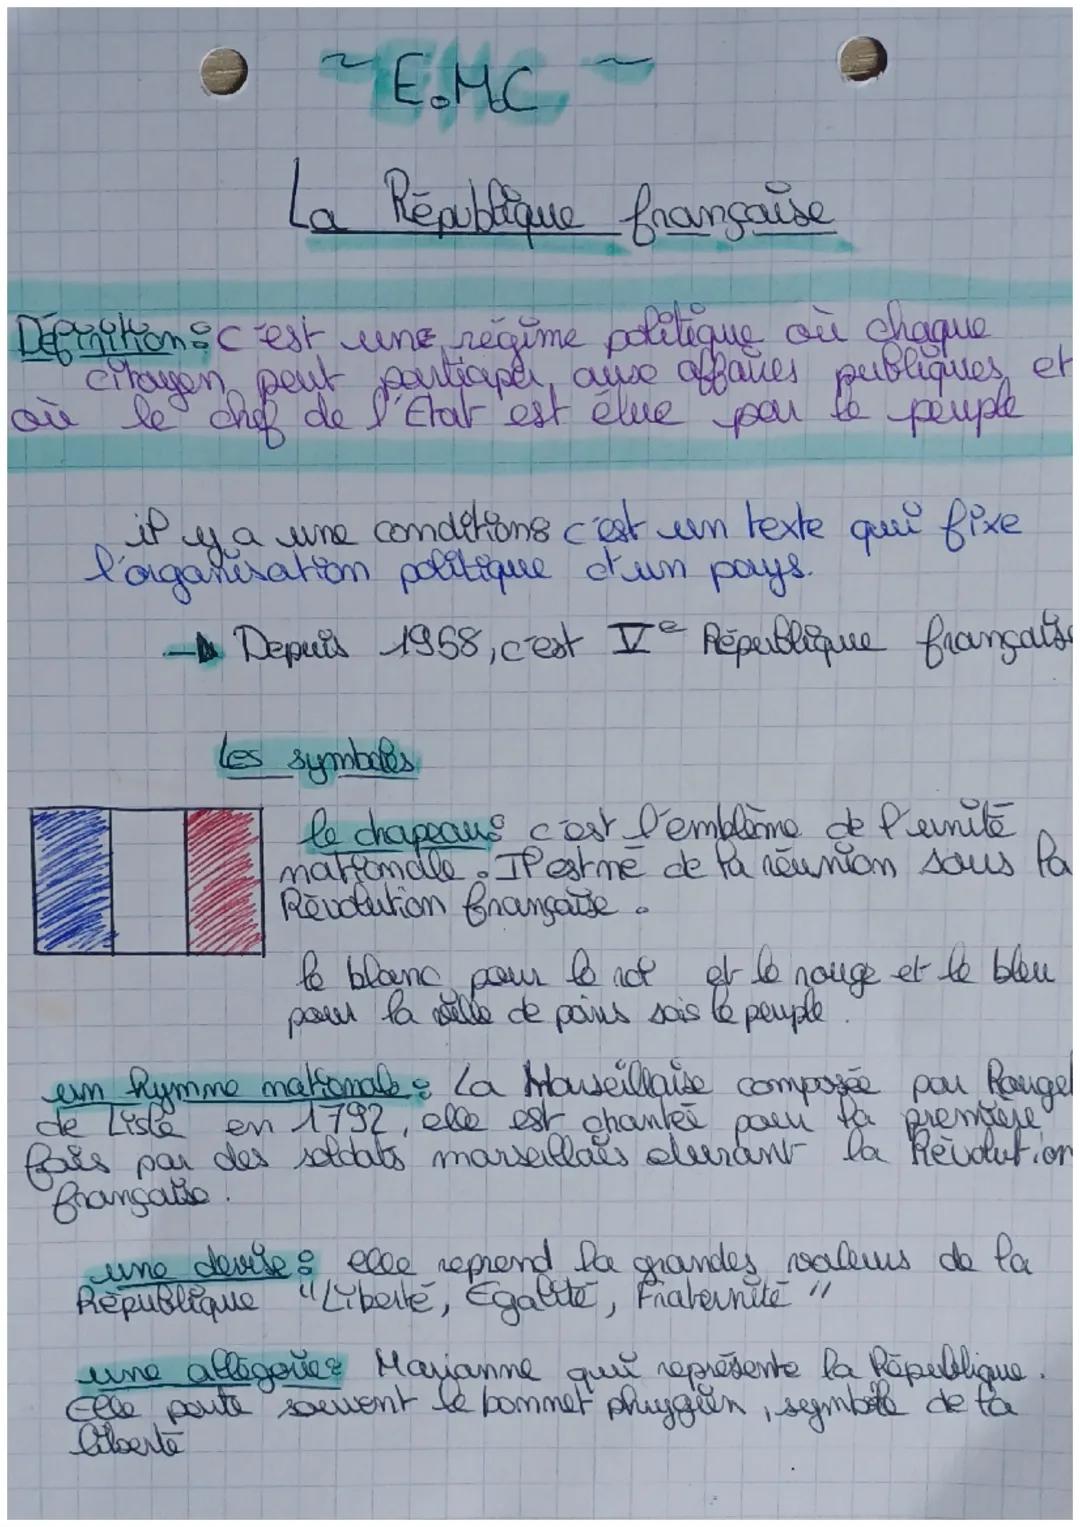 ~ E.M.C ~
La République française
Définition : c'est une régime politique où chaque
citoyen peut participer aux affaires publiques et
où le chef de l'Etat est élue par le peuple
il y a une conditions c'est un texte qui fixe
l'organisation politique d'un pays.
→ Depuis 1958, c'est Ve République française
les symboles
le chapeau : c'est l'emblème de l'unité
nationale. Il est né de la réunion sous la
Révolution française.
le blanc pour le roi et le rouge et le bleu
pour la ville de paris sois le peuple.
un hymne nationale : La Marseillaise composée par Rouget
de Lisle en 1792, elle est chantée pour la première
fois par des soldats marseillais durant la Révolution
française.
une devise : elle reprend la grandes valeurs de la
République "Liberté, Egalité, Fraternité"
une allégorie : Marianne qui représente la République.
Elle porte souvent le bonnet phrygien, symbole de la
liberté